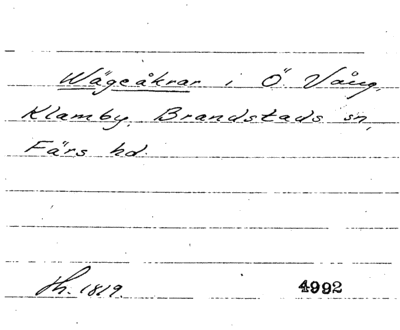 Wägeåkrar i Ö. Vång,
Klamby, Brandstads sn,
Färs hd.
Sh. 1819. 4992